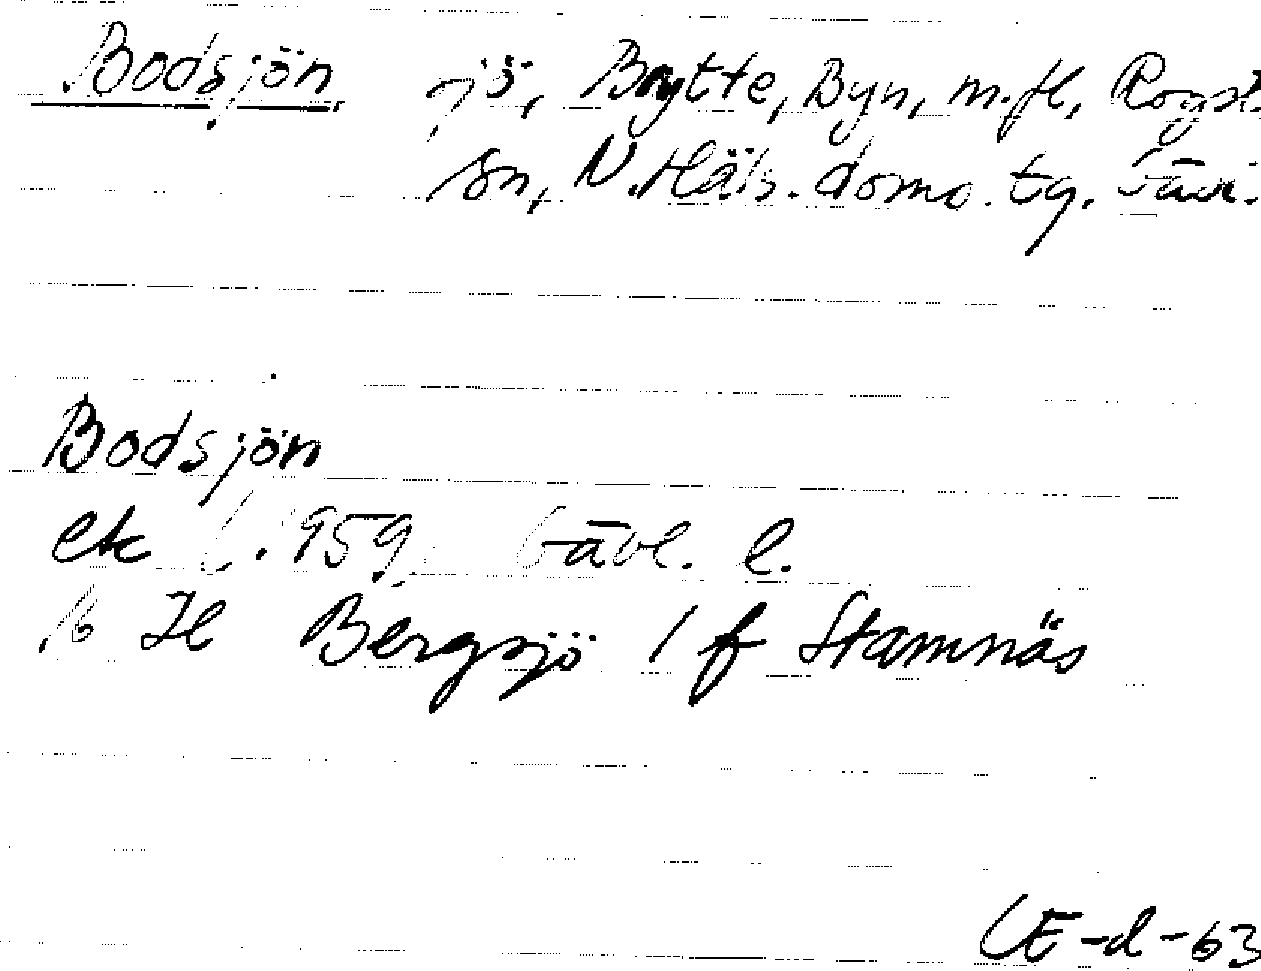 Bodsjön sjö, Brytte, Byn, m.fl, Rogst.
sn, N. Häls. doms. tg. Gävl.
Bodsjön
ek 1959 Gävl. l.
16 H Bergsjö 1 f Stamnäs
CE-d-63